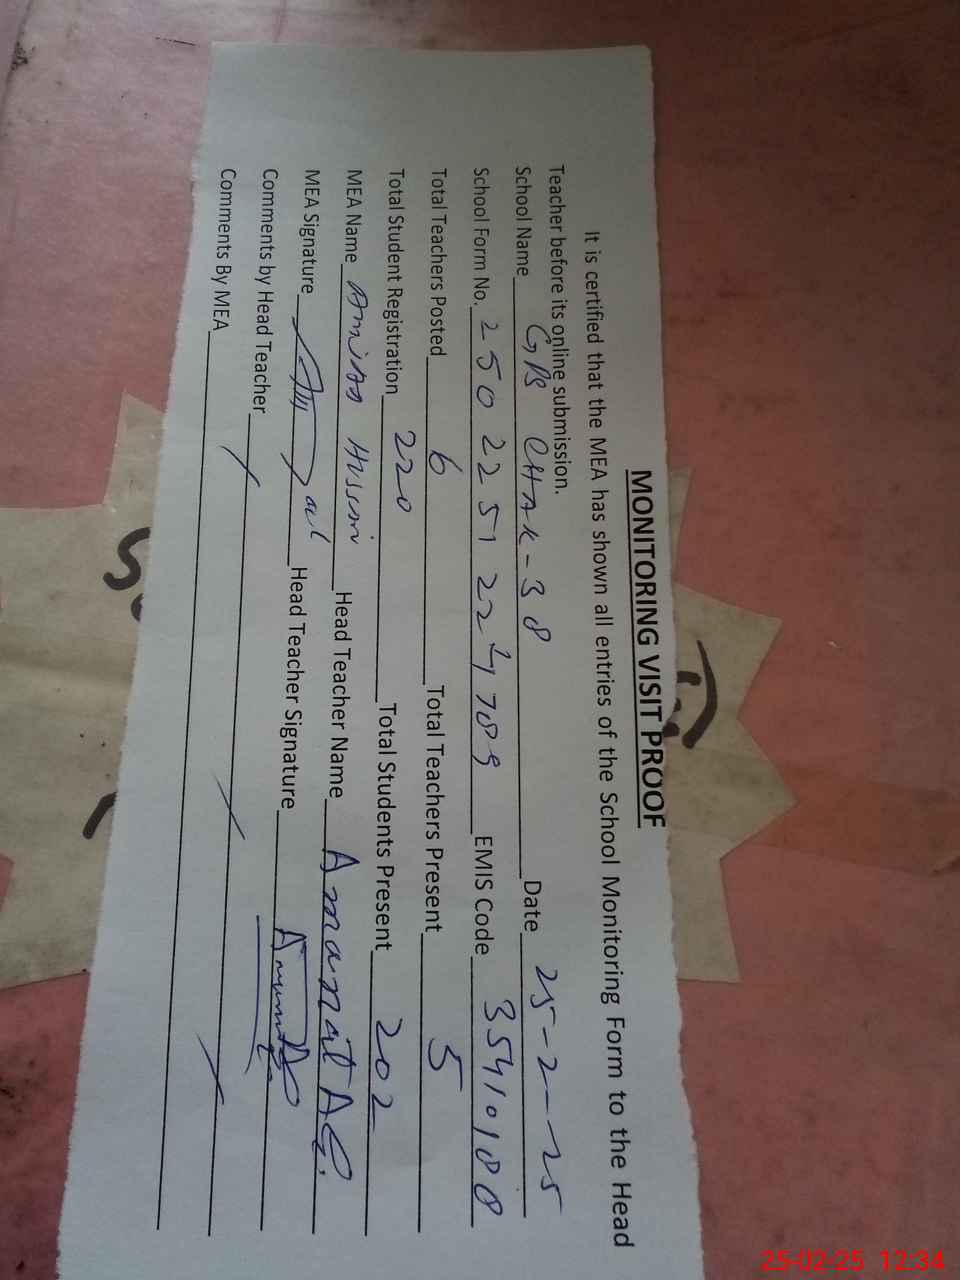 MONITORING VISIT PROOF
It is certified that the MEA has shown all entries of the School Monitoring Form to the Head
Teacher before its online submission.
School Name GPS CHAK-38 Date 25-2-25
School Form No. EMIS Code 35410188
Total Teachers Posted 6 Total Teachers Present 5
Total Student Registration 220 Total Students Present 202
MEA Name Head Teacher Name Amanat Ali
MEA Signature Head Teacher Signature
Comments by Head Teacher
Comments By MEA
25-02-25 12:34